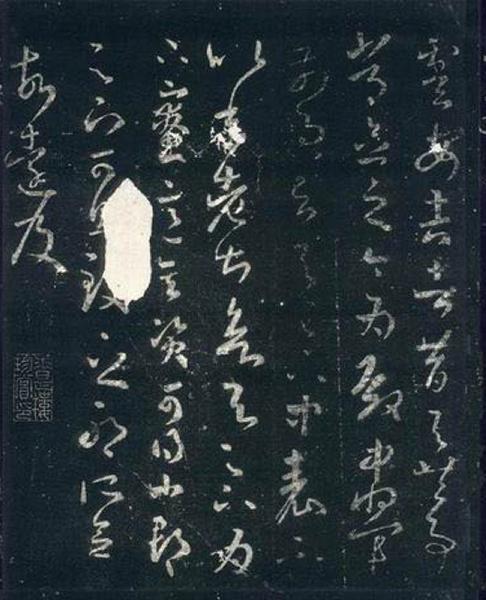 虞安吉者昔與共事
常念之今為殿中將軍
前過云與足下中表不
以年老甚欲與足下為
下寮意其資可得小郡
足下可思致之耶所念
故遠及